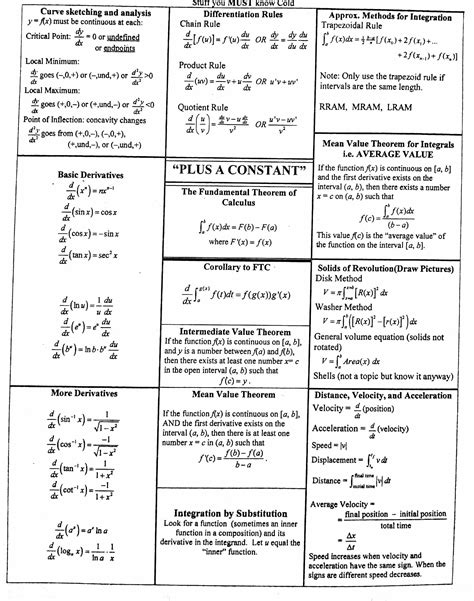 Stuff you MUST know Cold
Curve sketching and analysis
y = f(x) must be continuous at each:
Critical Point: dy/dx = 0 or undefined
or endpoints
Local Minimum:
dy/dx goes (–,0,+) or (–,und,+) or d²y/dx² >0
Local Maximum:
dy/dx goes (+,0,–) or (+,und,–) or d²y/dx² <0
Point of Inflection: concavity changes
d²y/dx² goes from (+,0,–), (–,0,+),
(+,und,–), or (–,und,+)
Differentiation Rules
Chain Rule
d/dx [f(u)] = f'(u) du/dx OR dy/dx = dy/du du/dx
Product Rule
d/dx (uv) = du/dx v + u dv/dx OR u'v + uv'
Quotient Rule
d/dx (u/v) = (du/dx v − u dv/dx)/v² OR (u'v − uv')/v²
Approx. Methods for Integration
Trapezoidal Rule
∫_a^b f(x)dx = 1/2 (b−a)/n [f(x₀) + 2f(x₁) + ...
+ 2f(xₙ₋₁) + f(xₙ)]
Note: Only use the trapezoid rule if
intervals are the same length.
RRAM, MRAM, LRAM
Basic Derivatives
d/dx (xⁿ) = nxⁿ⁻¹
d/dx (sin x) = cos x
d/dx (cos x) = −sin x
d/dx (tan x) = sec² x
d/dx (ln u) = 1/u du/dx
d/dx (eᵘ) = eᵘ du/dx
d/dx (bᵘ) = ln b · bᵘ du/dx
"PLUS A CONSTANT"
The Fundamental Theorem of
Calculus
∫_a^b f(x)dx = F(b) − F(a)
where F'(x) = f(x)
Corollary to FTC
d/dx ∫_a^g(x) f(t)dt = f(g(x))g'(x)
Intermediate Value Theorem
If the function f(x) is continuous on [a, b],
and y is a number between f(a) and f(b),
then there exists at least one number x= c
in the open interval (a, b) such that
f(c) = y.
Mean Value Theorem for Integrals
i.e. AVERAGE VALUE
If the function f(x) is continuous on [a, b]
and the first derivative exists on the
interval (a, b), then there exists a number
x = c on (a, b) such that
f(c) = ∫_a^b f(x)dx / (b − a)
This value f(c) is the "average value" of
the function on the interval [a, b].
Solids of Revolution(Draw Pictures)
Disk Method
V = π∫_{x=a}^{x=b} [R(x)]² dx
Washer Method
V = π∫_a^b ([R(x)]² − [r(x)]²) dx
General volume equation (solids not
rotated)
V = ∫_a^b Area(x) dx
Shells (not a topic but know it anyway)
More Derivatives
d/dx (sin⁻¹ x) = 1/√(1−x²)
d/dx (cos⁻¹ x) = −1/√(1−x²)
d/dx (tan⁻¹ x) = 1/(1+x²)
d/dx (cot⁻¹ x) = −1/(1+x²)
d/dx (aˣ) = aˣ ln a
d/dx (logₐ x) = 1/ln a · 1/x
Mean Value Theorem
If the function f(x) is continuous on [a, b],
AND the first derivative exists on the
interval (a, b), then there is at least one
number x = c in (a, b) such that
f'(c) = (f(b) − f(a))/(b − a).
Integration by Substitution
Look for a function (sometimes an inner
function in a composition) and its
derivative in the integrand. Let u equal the
"inner" function.
Distance, Velocity, and Acceleration
Velocity = d/dt (position)
Acceleration = d/dt (velocity)
Speed = |v|
Displacement = ∫ v dt
Distance = ∫_{initial time}^{final time} |v| dt
Average Velocity =
= (final position − initial position)/total time
= Δx/Δt
Speed increases when velocity and
acceleration have the same sign. When the
signs are different speed decreases.